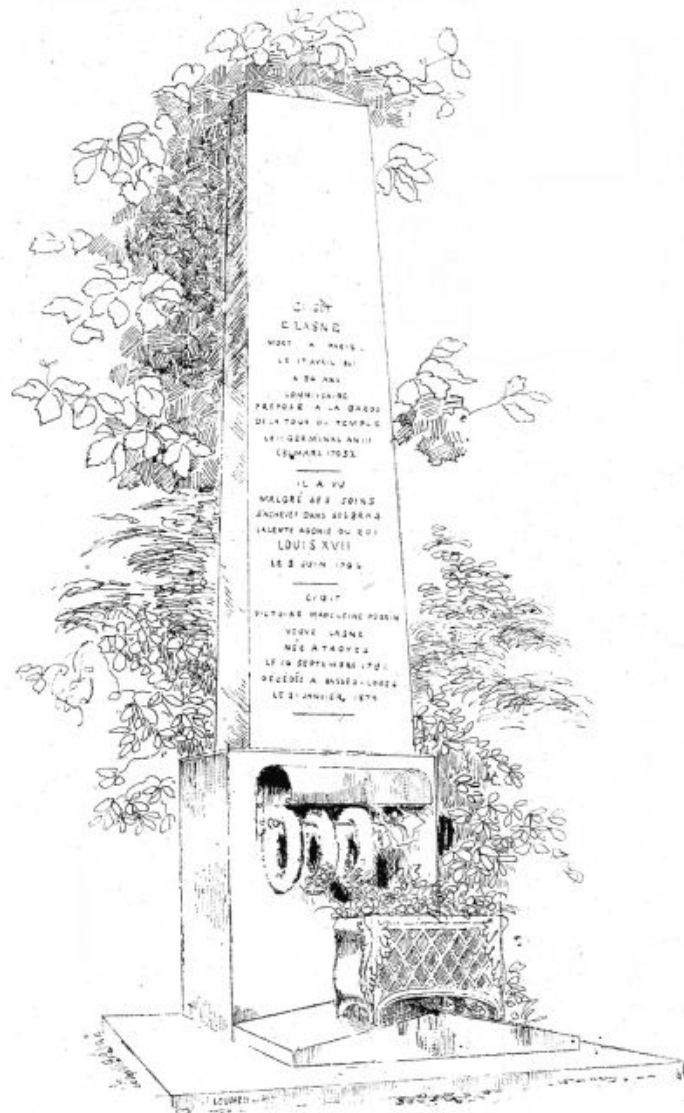 CI GÎT
E LASNE
MORT A PARIS
LE 17 AVRIL
A 84 ANS
COMMISSAIRE
PREPOSÉ A LA GARDE
DE LA TOUR DU TEMPLE
LE 11 GERMINAL AN III
(31 MARS 1795)
IL A VU
MALGRÉ SES SOINS
S'ACHEVER DANS SES BRAS
LA LENTE AGONIE DU ROI
LOUIS XVII
LE 8 JUIN 1795
CI GIT
VICTOIRE MADELEINE
VEUVE LASNE
NÉE A TROYES
LE 16 SEPTEMBRE
DÉCÉDÉE A
LE 21 JANVIER, 1874